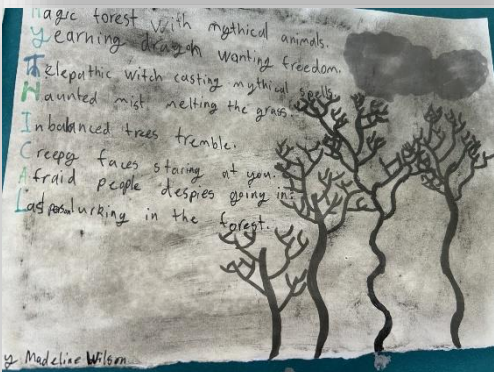 Magic forest with mythical animals.
Yearning dragon wanting freedom.
Telepathic witch casting mythical spells.
Haunted mist melting the grass.
Inbalanced trees tremble.
Creepy faces staring at you.
Afraid people despies going in.
Last person lurking in the forest.
y Madeline Wilson